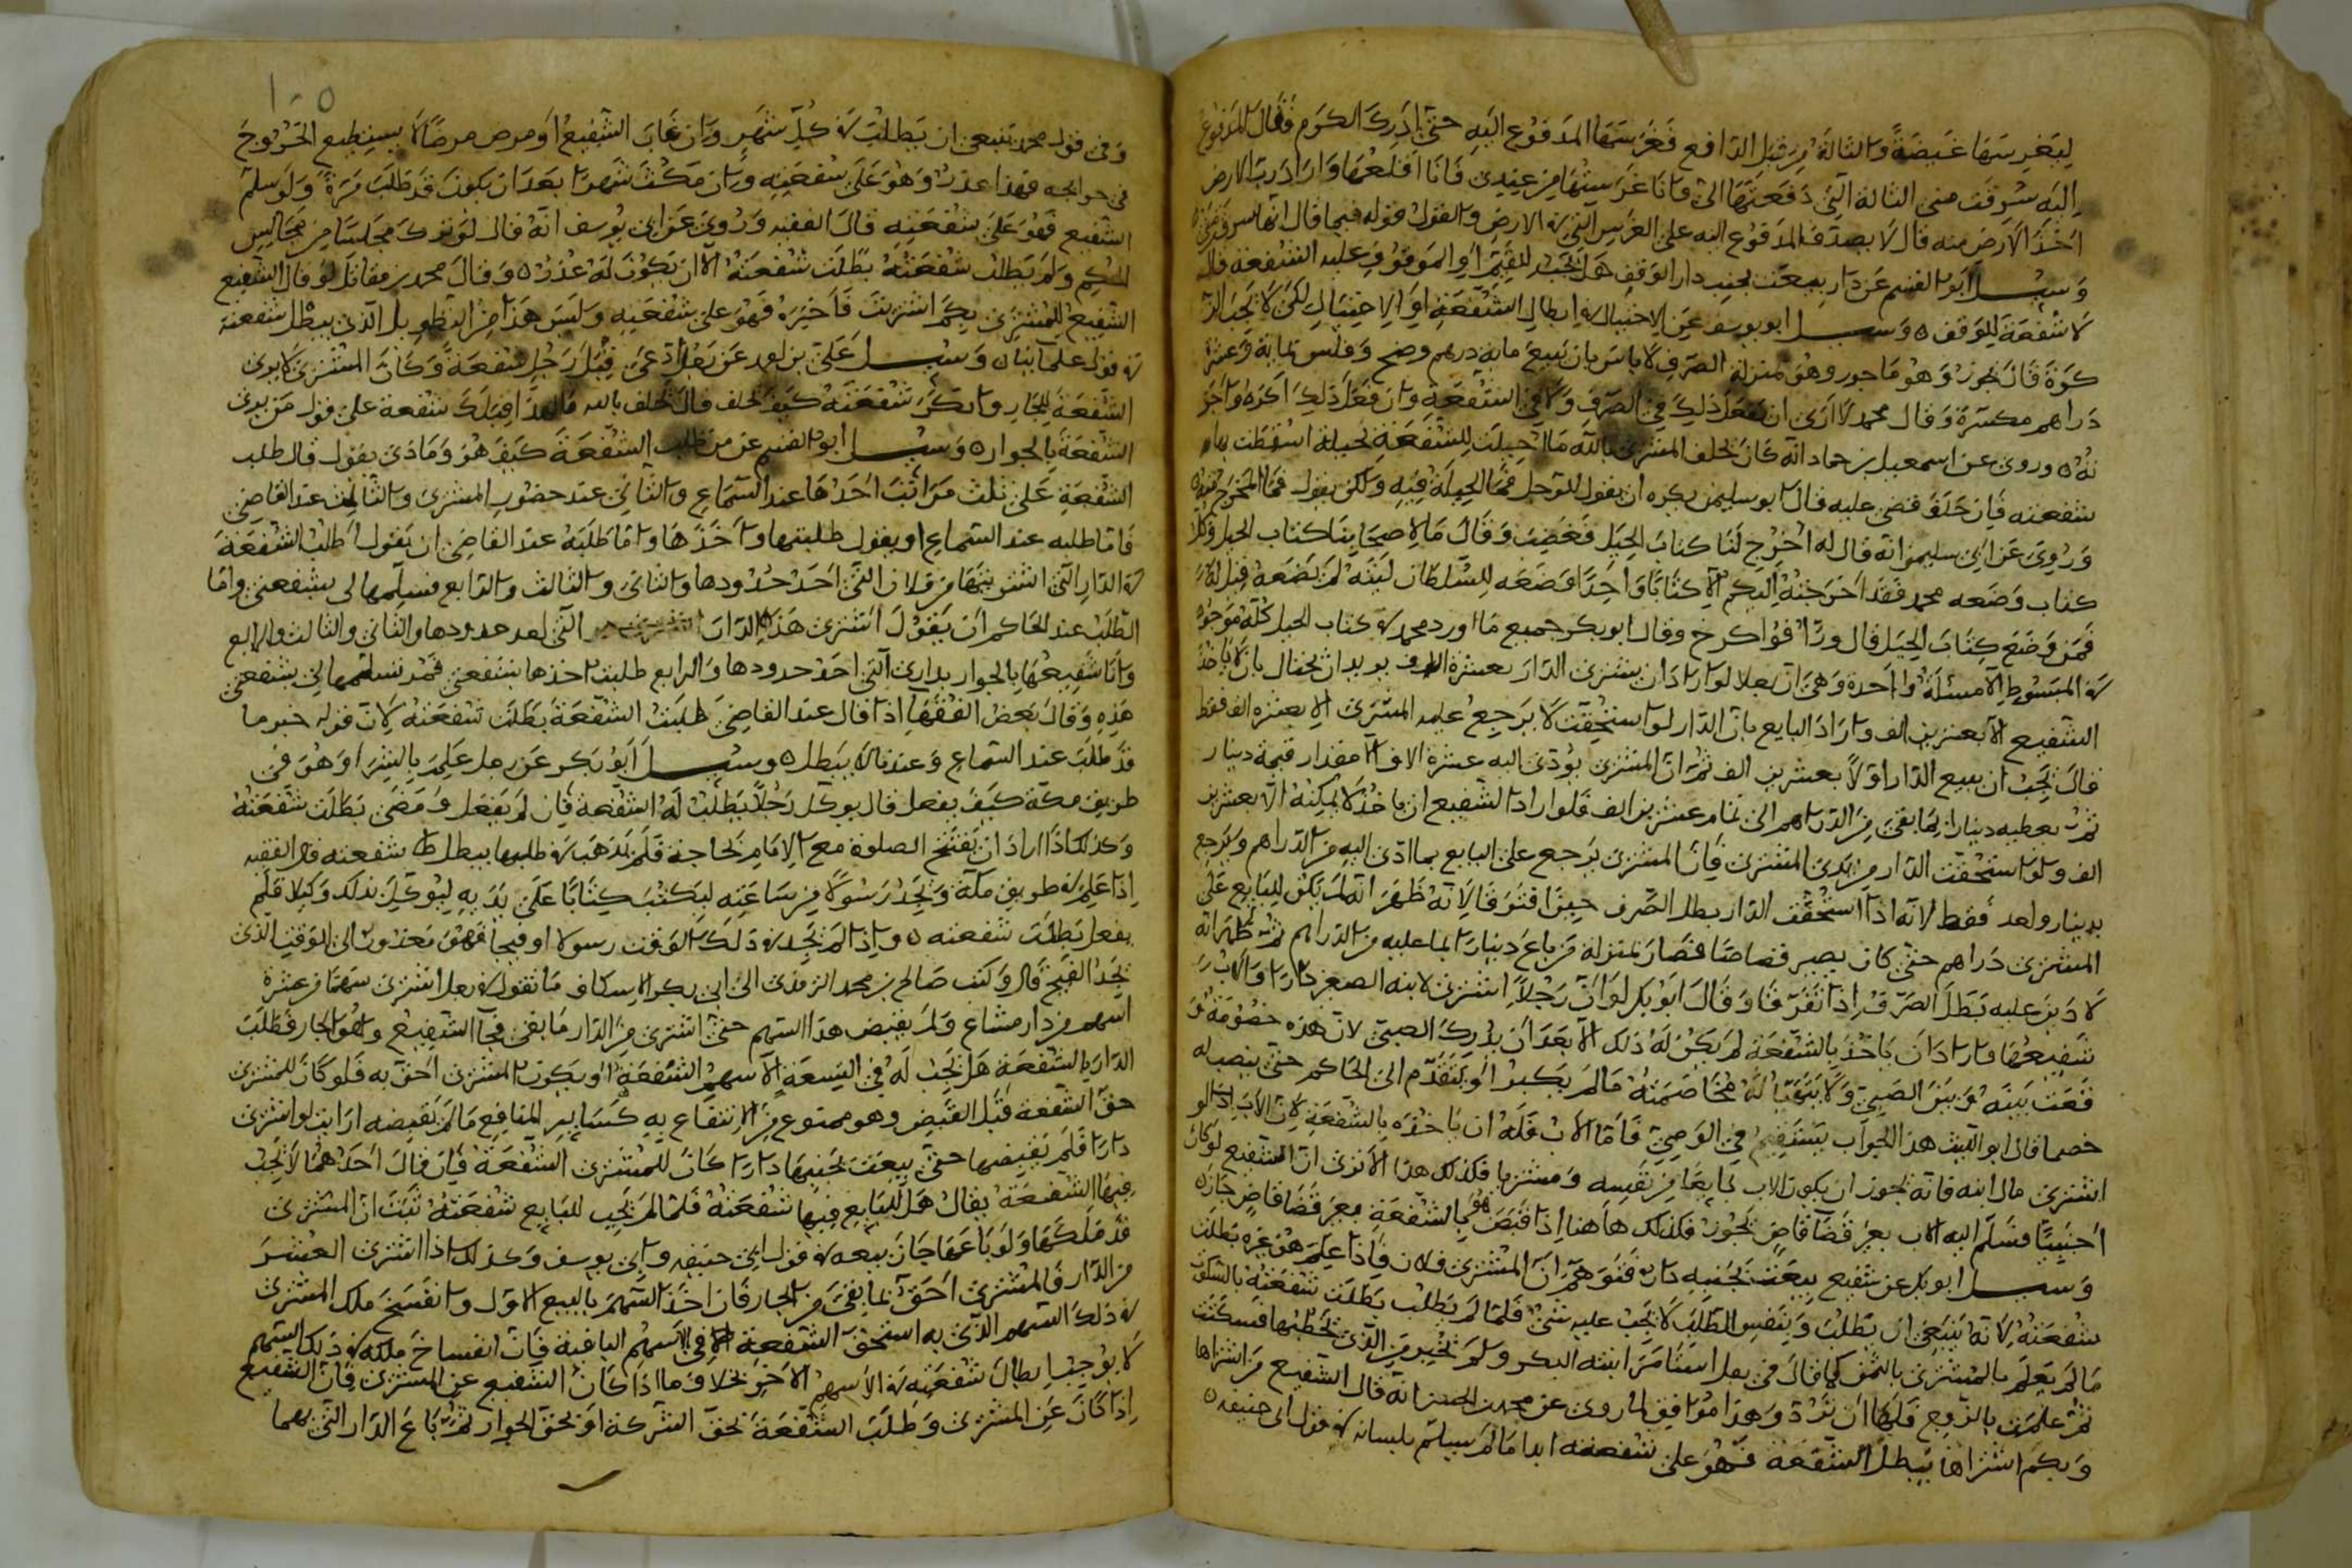 ليغرسها غيضة والتالة من قبل الدافع فغرسها المدفوع اليه حتى ادرك الكرم فقال المدفوع
اليه سرقت منى التالة التى دفعتها الىّ وانا غرستها من عندى فانا اقلعها واراد رب الارض
اخذ الارض منه قال لا يصدق المدفوع اليه على الغرس التى فى الارض والقول قوله فيما قال انها سرقت منه
وسئل ابو القسم عن دار بيعت بجنب دار الوقف هل تجب للقيم او الموقوف عليه الشفعة قال
لا شفعة للوقف وسئل ابو يوسف عن الاحتيال فى ابطال الشفعة او الاحتيال لكى لا تجب الز
كوة قال يجوز وهو ماجور وهو منزلة الصرف لا باس بان يبيع مايه درهم وضح وفلس بمايه وعشرة
دراهم مكسرة وقال محمد لا ارى ان يفعل ذلك فى الصرف ولا فى الشفعة وان فعل ذلك اكره واجو
زه وروى عن اسمعيل بن حماد انه كان يحلف المشترى بالله ما احتيلت للشفعة بحيلة اسقطت بها
شفعته فان حلف قضى عليه قال ابو سليمن يكره ان يقول للرجل فما الحيلة فيه ولكن يقول فما المخرج فيه
وروى عن ابى سليمن انه قال له اخرج لنا كتاب الحيل فغضب وقال ما لاصحابنا كتاب الحيل وكل
كتاب وضعه محمد فقد اخرجته اليكم الا كتابا واحدا وضعه للسلطان ليته لم يضعه قيل له
فمن وضع كتاب الحيل قال وراقوا كرخ وقال ابو بكر جميع ما اورد محمد فى كتاب الحيل كله موجود
فى المبسوط الا مسئلة واحدة وهى ان رجلا لو اراد ان يشترى الدار بعشرة الاف يريد ان يحتال بان لا ياخذ
الشفيع الا بعشرين الف واراد البايع بان الدار لو استحقت لا يرجع عليه المشترى الا بعشرة الف فقط
قال يجب ان يبيع الدار اولا بعشرين الف ثم ان المشترى يؤدى اليه عشرة الاف الا مقدار قيمة دينار
ثم يعطيه دينارا بما بقى من الدراهم الى تمام عشرين الف فلو اراد الشفيع ان ياخذ لا يمكنه الا بعشرين
الف ولو استحقت الدار من يدى المشترى فان المشترى يرجع على البايع بما ادى اليه من الدراهم ويرجع
بدينار واحد فقط لانه اذا استحقت الدار بطل الصرف حين افترقا لانه ظهر انه لم يكن للبايع على
المشترى دراهم حتى كان يصير قصاصا فصار بمنزلة من باع دينارا بما عليه من الدراهم ثم ظهر انه
لا دين عليه بطل الصرف اذا تفرقا وقال ابو بكر لو ان رجلا اشترى لابنه الصغير دارا والاب
شفيعها فاراد ان ياخذ بالشفعة لم يكن له ذلك الا بعد ان يدرك الصبى لان هذه خصومة و
قعت بينه وبين الصبى ولا يتهيا له مخاصمته ما لم يكبر او يتقدم الى الحاكم حتى ينصب له
خصما قال ابو الليث هذا الجواب يستقيم فى الوصى فاما الاب فله ان ياخذه بالشفعة لان الاب اذا
اشترى مال ابنه فانه يجوز ان يكون الاب بايعا من نفسه ومشتريا فكذلك هذا الا ترى ان الشفيع لو كان
اجنبيا فسلم اليه الاب بغير قضا قاض يجوز فكذلك هاهنا اذا قبض هو بالشفعة بغير قضا قاض جاز
وسئل ابو بكر عن شفيع بيعت بجنبه دار فتوهم ان المشترى فلان فاذا علم هو غيره بطلت
شفعته لانه ينبغى ان يطلب وبنفس الطلب لا يجب عليه شئ فلما لم يطلب بطلت شفعته بالسكوت
ما لم يعلم بالمشترى بالثمن كما قال فى رجل استامر ابنته البكر ولم يخبر من الذى يخطبها فسكتت
ثم علمت بالزوج فلها ان ترد وهذا موافق لما روى عن محمد بن الحسن انه قال الشفيع من اشتراها
وبكم اشتراها يبطل الشفعة فهو على شفعته ابدا ما لم يسلم بلسانه فى قول ابى حنيفه
١٠٥
وفى قول محمد ينبغى ان يطلب فى كل شهر وان غاب الشفيع او مرض مرضا لا يستطيع الخروج
فى حوايجه فهذا عذر وهو على شفعته وان مكث شهرا بعد ان يكون قد طلب مرة ولو سلم
الشفيع فهو على شفعته قال الفقيه وروى عن ابى يوسف انه قال لو ترك مجلسا من مجالس
الحكم ولم يطلب شفعته بطلت شفعته الا ان يكون له عذر وقال محمد بن مقاتل لو قال الشفيع
الشفيع للمشترى بكم اشتريت فاخبره فهو على شفعته وليس هذا من التطويل الذى يبطل شفعته
فى قول علماينا وسئل على بن احمد عن رجل ادعى قبل رجل شفعة وكان المشترى لا يرى
الشفعة للجار وانكر شفعته كيف يحلف قال يحلف بالله ما لهذا قبلك شفعة على قول من يرى
الشفعة بالجوار وسئل ابو القسم عن من طلب الشفعة كيف هو وماذى يقول قال طلب
الشفعة على ثلث مراتب احدها عند السماع والثانى عند حضور المشترى والثالث عند القاضى
فاما طلبه عند السماع او يقول طلبتها واخذها واما طلبه عند القاضى ان يقول اطلب الشفعة
فى الدار التى اشتريتها من فلان التى احد حدودها والثانى والثالث والرابع فسلمها لى بشفعتى واما
الطلب عند الحاكم ان يقول اشترى هذا الدار التى احد حدودها والثانى والثالث والرابع
وانا شفيعها بالجوار بدارى التى احد حدودها والرابع طلبت اخذها بشفعتى فمر بتسلمها لى بشفعتى
هذه وقال بعض الفقها اذا قال عند القاضى طلبت الشفعة بطلت شفعته لان قوله خبر ما
قد طلب عند السماع وعندنا لا يبطل وسئل ابو بكر عن رجل علم بالشرا وهو فى
طريق مكة كيف يفعل قال يوكل رجلا يطلب له الشفعة فان لم يفعل ومضى بطلت شفعته
وكذلك اذا اراد ان يفتتح الصلوة مع الامام لحاجة فلم يذهب فى طلبها يبطل شفعته قال الفقيه
اذا علم فى طريق مكة ويجد رسولا من ساعته ليكتب كتابا على يديه ليوكل بذلك وكيلا فلم
يفعل بطلت شفعته واذا لم يجد فى ذلك الوقت رسولا او فيجا فهو معذور الى الوقت الذى
يجد الفيج قال وكتب صالح بن محمد الترمذى الى ابى بكر الاسكاف ما تقول فى رجل اشترى سهما من عشرة
اسهم من دار مشاع ولم يقبض هذا السهم حتى اشترى من الدار ما بقى فجا الشفيع وهو الجار فطلب
الدار بالشفعة هل تجب له فى التسعة الاسهم الشفعة او يكون المشترى احق به فلو كان للمشترى
حق الشفعة قبل القبض وهو ممنوع من الانتفاع به كساير المنافع ما لم يقبضه ارايت لو اشترى
دارا فلم يقبضها حتى بيعت بجنبها دارا كان للمشترى الشفعة فان قال احدهما لا تجب
فيها الشفعة يقال هل للبايع فيها شفعته فلما لم تجب للبايع شفعته ثبت ان المشترى
قد ملكها ولو باعها جاز بيعه فى قول ابى حنيفه وابى يوسف وكذلك اذا اشترى العشر
من الدار فالمشترى احق بما بقى من الجار فان اخذ السهم بالبيع الاول وانفسخ ملك المشترى
فى ذلك السهم الذى به استحق الشفعة فى الاسهم الباقية فان انفساخ ملكه فى ذلك السهم
لا يوجب ابطال شفعته فى الاسهم الاخر بخلاف ما اذا كان الشفيع عن المشترى فان الشفيع
اذا كان عن المشترى وطلب الشفعة بحق الشركة او بحق الجوار ثم باع الدار التى بهما